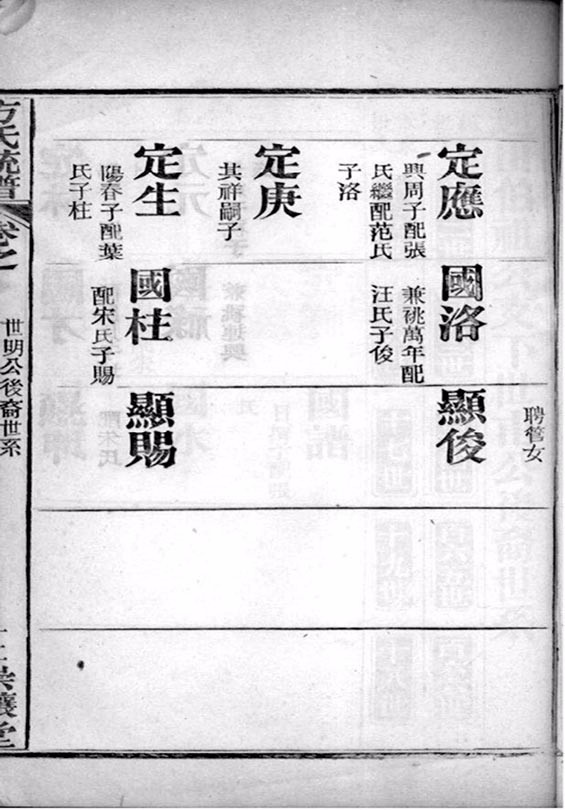 聘管女
定應
興周子配張
氏繼配范氏
子洛
定庚
其祥嗣子
定生
陽春子配葉
氏子柱
國洛
兼祧萬年配
汪氏子俊
國柱
配宋氏子賜
顯俊
顯賜
方氏統譜
卷之
世明公後裔世系